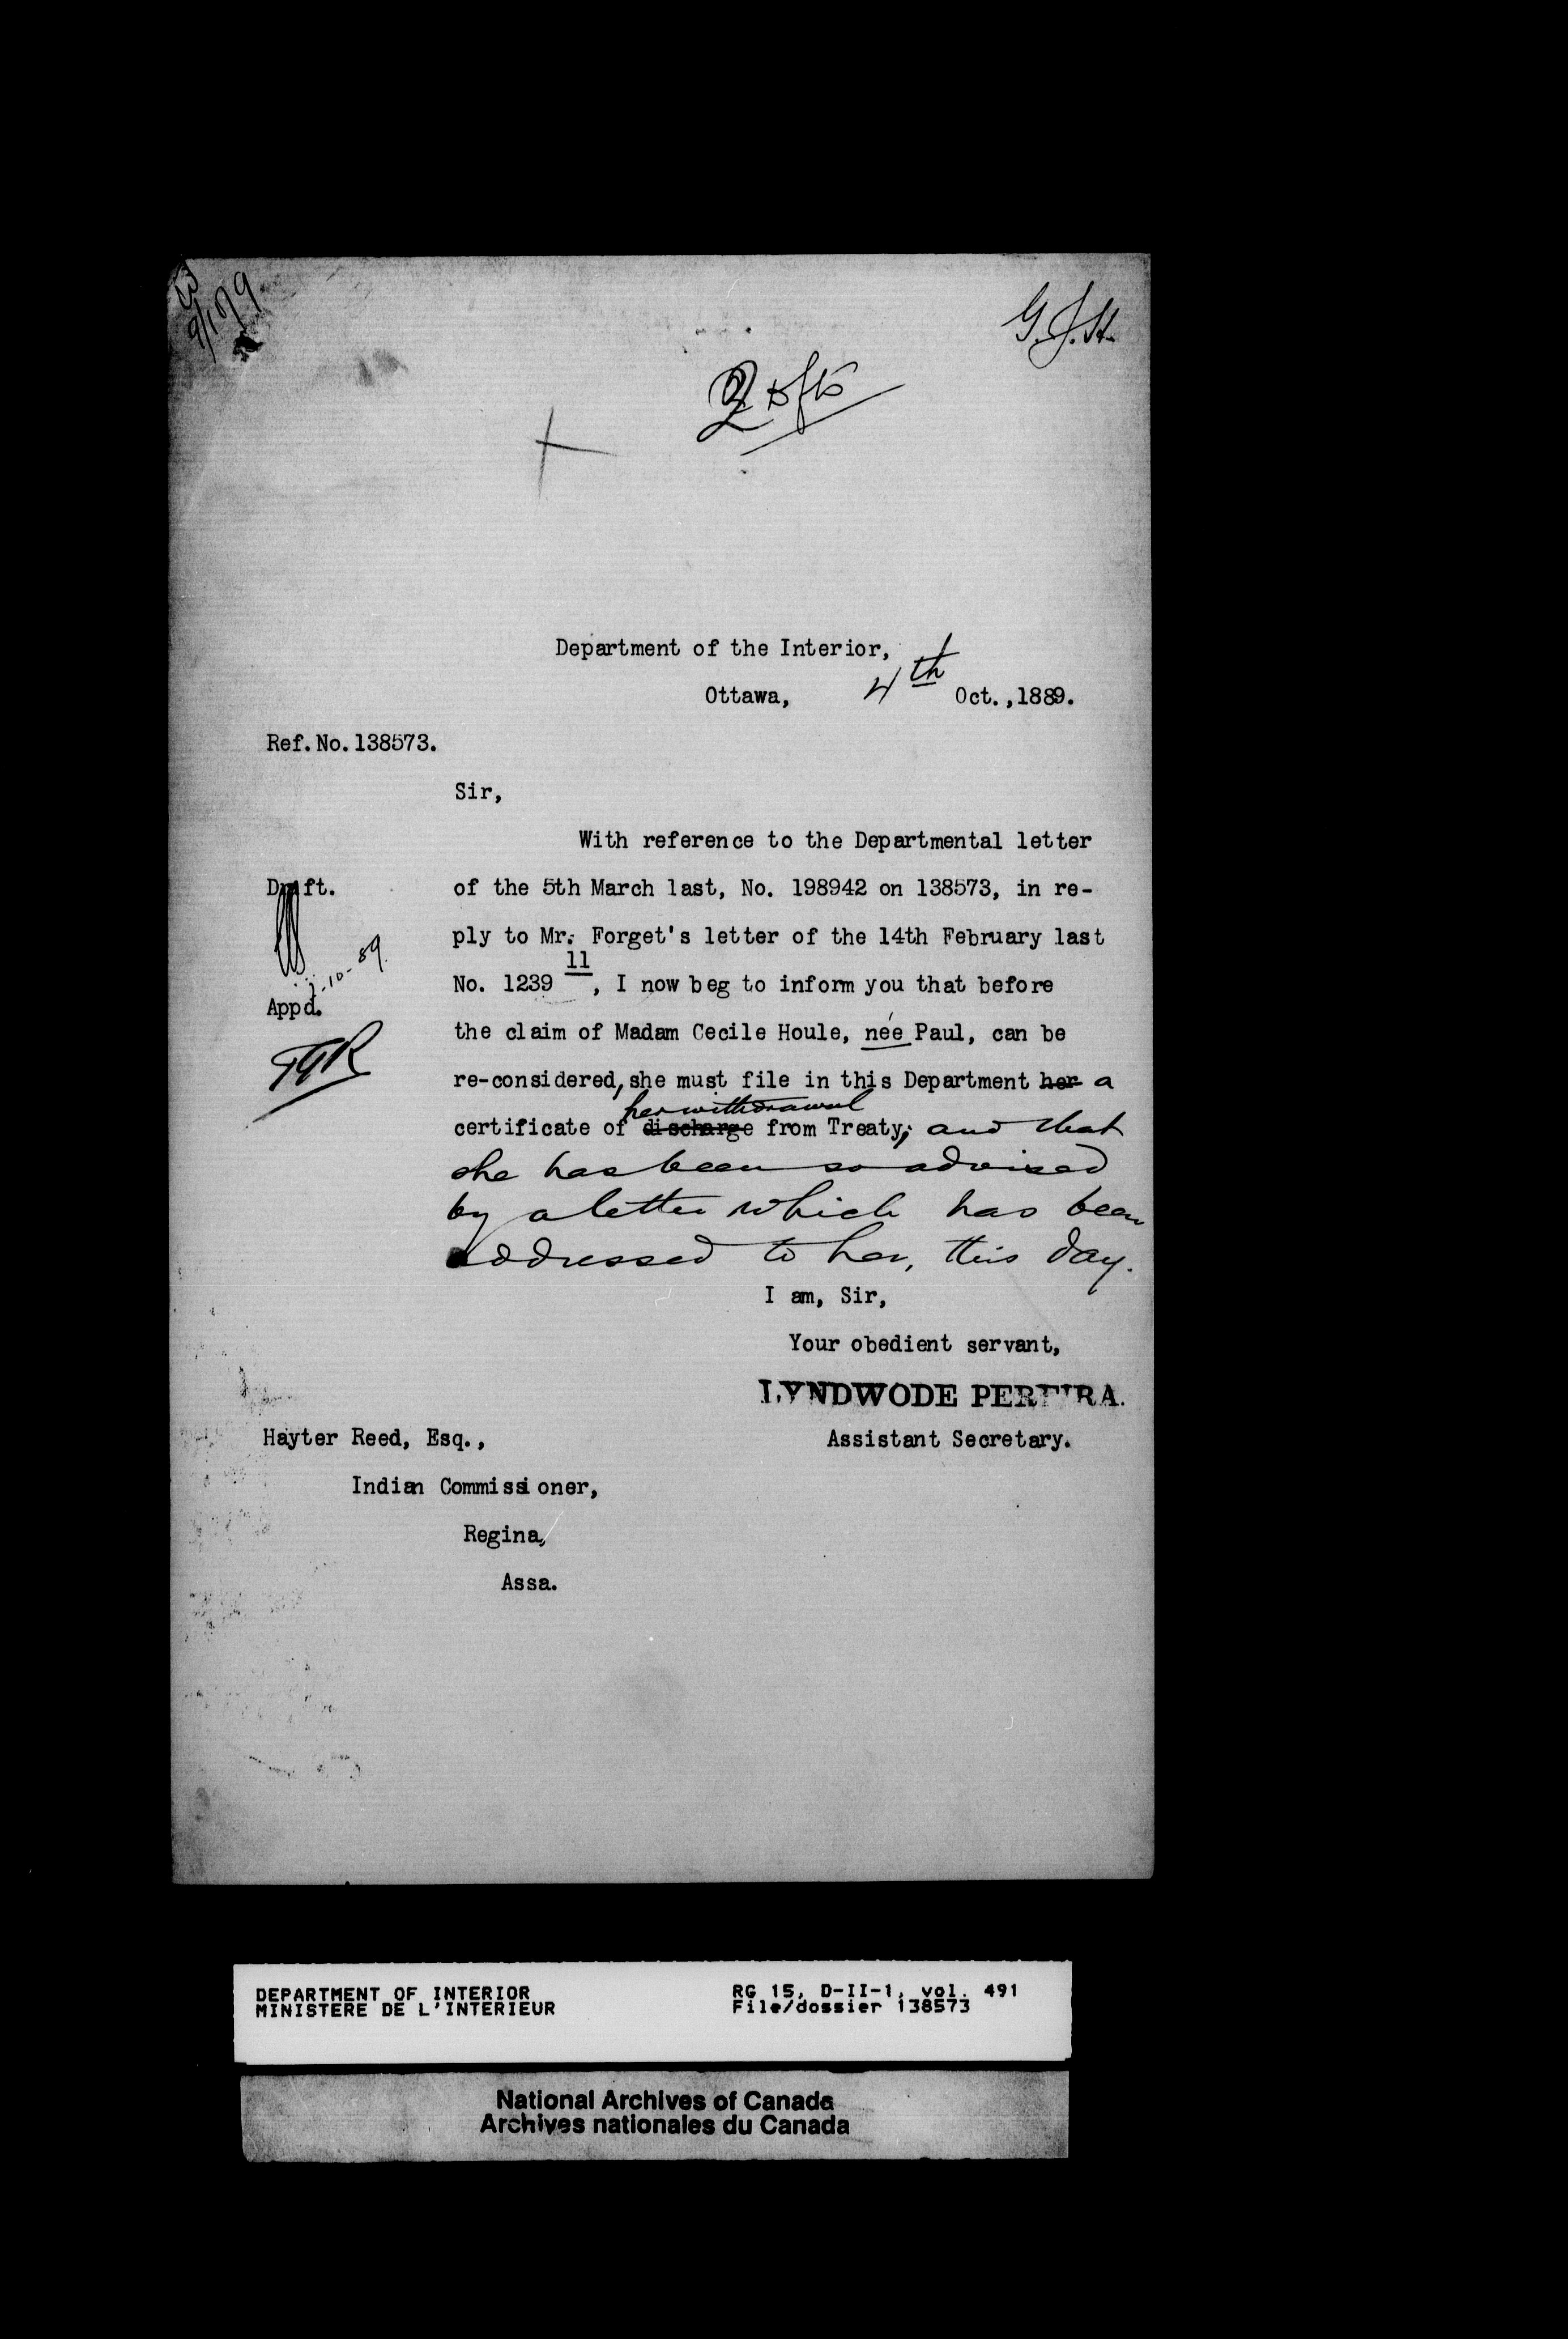 G.J.H.
Department of the Interior,
Ottawa, 4th Oct., 1889.
Ref. No. 138573.
Sir,
With reference to the Departmental letter
Draft. of the 5th March last, No. 198942 on 138573, in re-
ply to Mr. Forget's letter of the 14th February last
-10-89.
No. 1239 11, I now beg to inform you that before
Appd.
the claim of Madam Cecile Houle, née Paul, can be
TGR
re-considered, she must file in this Department her a
her withdrawal
certificate of discharge from Treaty, and that
she has been so advised
by a letter which has been
addressed to her, this day.
I am, Sir,
Your obedient servant,
LYNDWODE PEREIRA.
Hayter Reed, Esq., Assistant Secretary.
Indian Commissioner,
Regina,
Assa.
DEPARTMENT OF INTERIOR RG 15, D-II-1, vol. 491
MINISTERE DE L'INTERIEUR File/dossier 138573
National Archives of Canada
Archives nationales du Canada